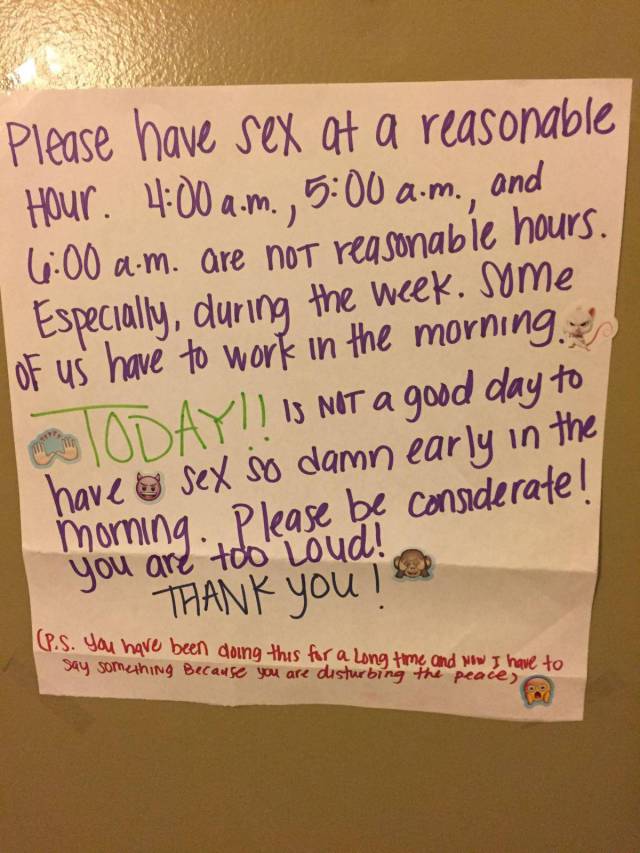 Please have sex at a reasonable
Hour. 4:00 a.m., 5:00 a.m., and
6:00 a.m. are not reasonable hours.
Especially, during the week. Some
of us have to work in the morning.
TODAY!! is NOT a good day to
have sex so damn early in the
morning. Please be considerate!
you are too Loud!
THANK you!
(P.S. You have been doing this for a Long time and now I have to
say something Because you are disturbing the peace)